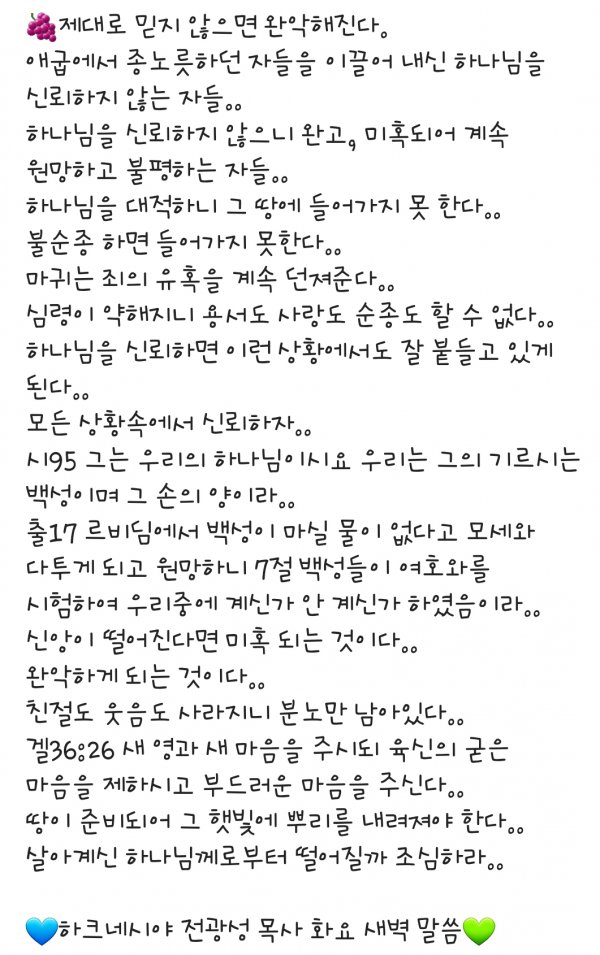 🍇제대로 믿지 않으면 완악해진다.
애굽에서 종노릇하던 자들을 이끌어 내신 하나님을
신뢰하지 않는 자들..
하나님을 신뢰하지 않으니 완고, 미혹되어 계속
원망하고 불평하는 자들..
하나님을 대적하니 그 땅에 들어가지 못 한다..
불순종 하면 들어가지 못한다..
마귀는 죄의 유혹을 계속 던져준다..
심령이 약해지니 용서도 사랑도 순종도 할 수 없다..
하나님을 신뢰하면 이런 상황에서도 잘 붙들고 있게
된다..
모든 상황속에서 신뢰하자..
시95 그는 우리의 하나님이시요 우리는 그의 기르시는
백성이며 그 손의 양이라..
출17 르비딤에서 백성이 마실 물이 없다고 모세와
다투게 되고 원망하니 7절 백성들이 여호와를
시험하여 우리중에 계신가 안 계신가 하였음이라..
신앙이 떨어진다면 미혹 되는 것이다..
완악하게 되는 것이다..
친절도 웃음도 사라지니 분노만 남아있다..
겔36:26 새 영과 새 마음을 주시되 육신의 굳은
마음을 제하시고 부드러운 마음을 주신다..
땅이 준비되어 그 햇빛에 뿌리를 내려져야 한다..
살아계신 하나님께로부터 떨어질까 조심하라..
💙하크네시야 전광성 목사 화요 새벽 말씀💚